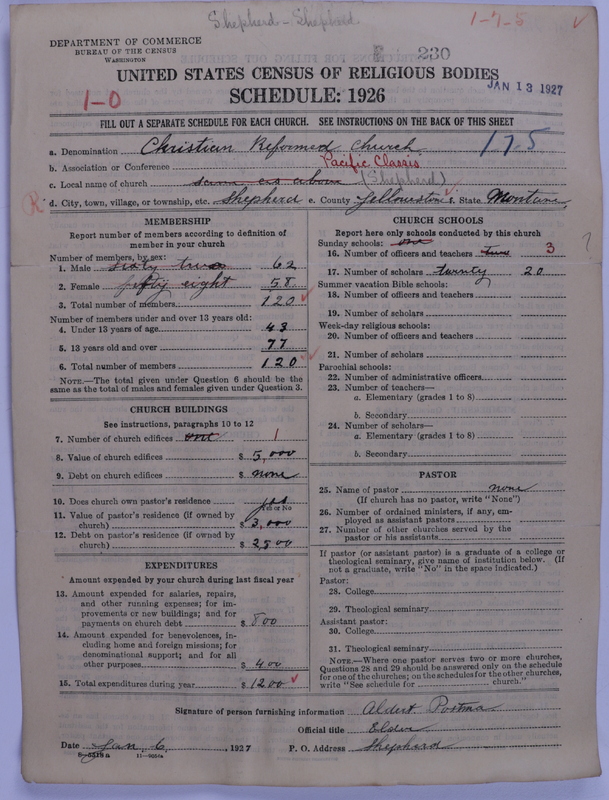 Shepherd - Shepherd.
1-7-5 ✓
DEPARTMENT OF COMMERCE
BUREAU OF THE CENSUS
WASHINGTON
230
UNITED STATES CENSUS OF RELIGIOUS BODIES
JAN 13 1927
1-0
SCHEDULE: 1926
FILL OUT A SEPARATE SCHEDULE FOR EACH CHURCH. SEE INSTRUCTIONS ON THE BACK OF THIS SHEET
a. Denomination Christian Reformed Church 175
b. Association or Conference Pacific Classis
c. Local name of church same as above (Shepherd)
R d. City, town, village, or township, etc. Shepherd e. County Yellowstone f. State Montana
MEMBERSHIP
Report number of members according to definition of member in your church
Number of members, by sex:
1. Male sixty two 62
2. Female fifty eight 58
3. Total number of members 120 ✓
Number of members under and over 13 years old:
4. Under 13 years of age 43
5. 13 years old and over 77
6. Total number of members 120 ✓
NOTE.—The total given under Question 6 should be the same as the total of males and females given under Question 3.
CHURCH BUILDINGS
See instructions, paragraphs 10 to 12
7. Number of church edifices one 1
8. Value of church edifices $ 5,000
9. Debt on church edifices $ none
10. Does church own pastor's residence yes
Yes or No
11. Value of pastor's residence (if owned by church) $ 3,000
12. Debt on pastor's residence (if owned by church) $ 2500
EXPENDITURES
Amount expended by your church during last fiscal year
13. Amount expended for salaries, repairs, and other running expenses; for improvements or new buildings; and for payments on church debt $ 800
14. Amount expended for benevolences, including home and foreign missions; for denominational support; and for all other purposes $ 400
15. Total expenditures during year $ 1200 ✓
CHURCH SCHOOLS
Report here only schools conducted by this church
Sunday schools: one
16. Number of officers and teachers two 3
17. Number of scholars twenty 20
Summer vacation Bible schools:
18. Number of officers and teachers
19. Number of scholars
Week-day religious schools:
20. Number of officers and teachers
21. Number of scholars
Parochial schools:
22. Number of administrative officers
23. Number of teachers—
a. Elementary (grades 1 to 8)
b. Secondary
24. Number of scholars—
a. Elementary (grades 1 to 8)
b. Secondary
PASTOR
25. Name of pastor none
(If church has no pastor, write "None")
26. Number of ordained ministers, if any, employed as assistant pastors
27. Number of other churches served by the pastor or his assistants
If pastor (or assistant pastor) is a graduate of a college or theological seminary, give name of institution below. (If not a graduate, write "No" in the space indicated.)
Pastor:
28. College
29. Theological seminary
Assistant pastor:
30. College
31. Theological seminary
NOTE.—Where one pastor serves two or more churches, Questions 28 and 29 should be answered only on the schedule for one of the churches; on the schedules for the other churches, write "See schedule for church."
Signature of person furnishing information Aldert Postma
Official title Elder
Date Jan. 6, 1927 P. O. Address Shepherd